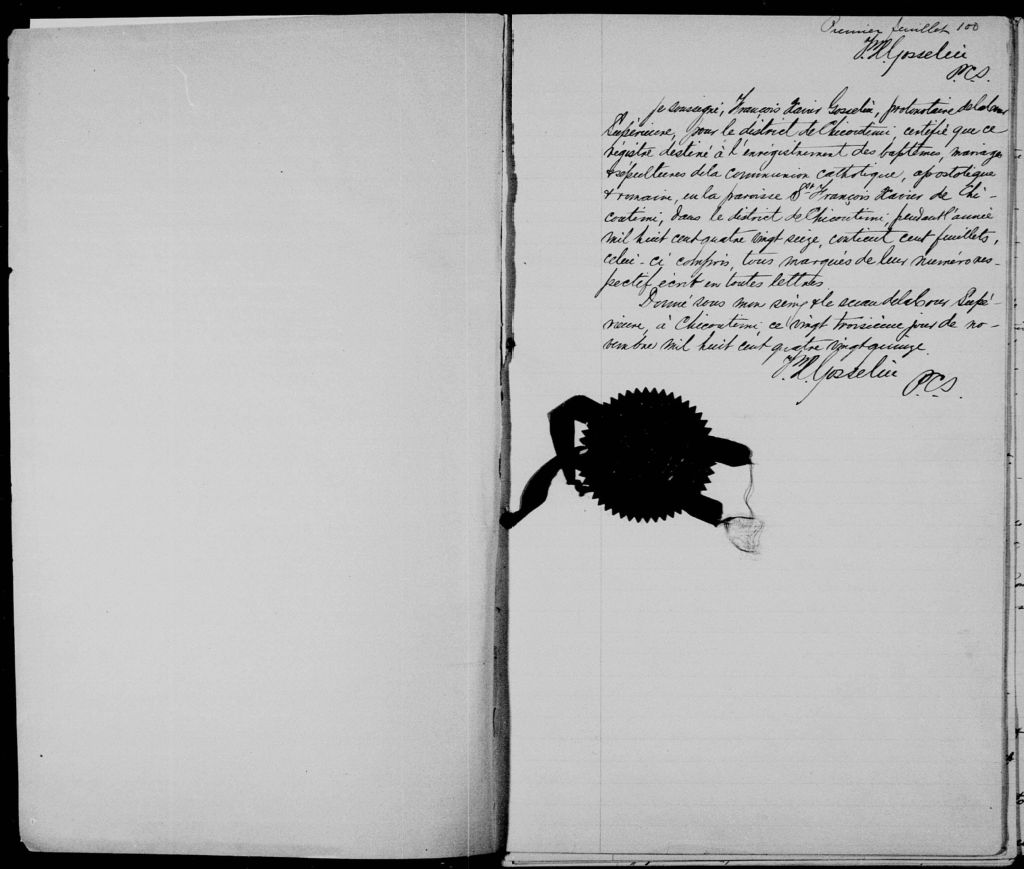 Premier feuillet 100
F. X. Gosselin
P.C.S.
Je soussigné, François Xavier Gosselin, protonotaire de la Cour
Supérieure, pour le district de Chicoutimi, certifie que ce
régistre destiné à l'enrégistrement des baptêmes, mariages
& sépultures de la communion catholique, apostolique
& romaine, en la paroisse St. François Xavier de Chi-
coutimi, dans le district de Chicoutimi, pendant l'année
mil huit cent quatre vingt seize, contient cent feuillets,
celui-ci compris, tous marqués de leur numéro res-
pectif écrit en toutes lettres.
Donné sous mon seing & le sceau de la Cour Supé-
rieure, à Chicoutimi, ce vingt troisième jour de no-
vembre mil huit cent quatre vingt quinze.
F. X. Gosselin
P.C.S.